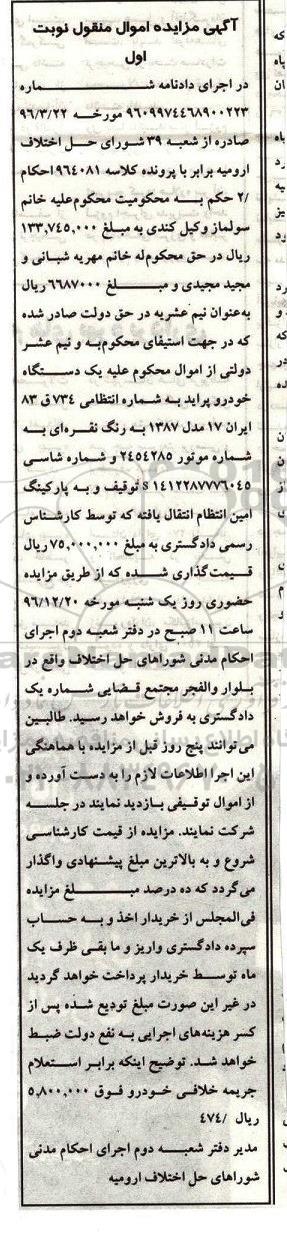 آگهی مزایده اموال منقول نوبت
اول
در اجرای دادنامه شماره
۹۶۰۹۹۷۴۴۶۸۹۰۰۲۲۳ مورخه ۹۶/۳/۲۲
صادره از شعبه ۳۹ شورای حل اختلاف
ارومیه برابر با پرونده کلاسه ۹۶۴۰۸۱ احکام
/۲ حکم به محکومیت محکوم‌علیه خانم
سولماز وکیل کندی به مبلغ ۱۳۳,۷۴۵,۰۰۰
ریال در حق محکوم‌له خانم مهریه شبانی و
مجید مجیدی و مبلغ ۶۶۸۷۰۰۰ ریال
به‌عنوان نیم عشریه در حق دولت صادر شده
که در جهت استیفای محکوم‌به و نیم عشر
دولتی از اموال محکوم علیه یک دستگاه
خودرو پراید به شماره انتظامی ۷۳۴ ق ۸۳
ایران ۱۷ مدل ۱۳۸۷ به رنگ نقره‌ای به
شماره موتور ۲۴۵۴۲۸۵ و شماره شاسی
s۱۴۱۲۲۸۷۷۷۶۰۴۵ توقیف و به پارکینگ
امین انتظام انتقال یافته که توسط کارشناس
رسمی دادگستری به مبلغ ۷۵,۰۰۰,۰۰۰ ریال
قیمت‌گذاری شده که از طریق مزایده
حضوری روز یک شنبه مورخه ۹۶/۱۲/۲۰
ساعت ۱۱ صبح در دفتر شعبه دوم اجرای
احکام مدنی شوراهای حل اختلاف واقع در
بلوار والفجر مجتمع قضایی شماره یک
دادگستری به فروش خواهد رسید. طالبین
می‌توانند پنج روز قبل از مزایده با هماهنگی
این اجرا اطلاعات لازم را به دست آورده و
از اموال توقیفی بازدید نمایند در جلسه
شرکت نمایند. مزایده از قیمت کارشناسی
شروع و به بالاترین مبلغ پیشنهادی واگذار
می‌گردد که ده درصد مبلغ مزایده
فی‌المجلس از خریدار اخذ و به حساب
سپرده دادگستری واریز و ما بقی ظرف یک
ماه توسط خریدار پرداخت خواهد گردید
در غیر این صورت مبلغ تودیع شده پس از
کسر هزینه‌های اجرایی به نفع دولت ضبط
خواهد شد. توضیح اینکه برابر استعلام
جریمه خلافی خودرو فوق ۵,۸۰۰,۰۰۰
ریال /۴۷۴
مدیر دفتر شعبه دوم اجرای احکام مدنی
شوراهای حل اختلاف ارومیه